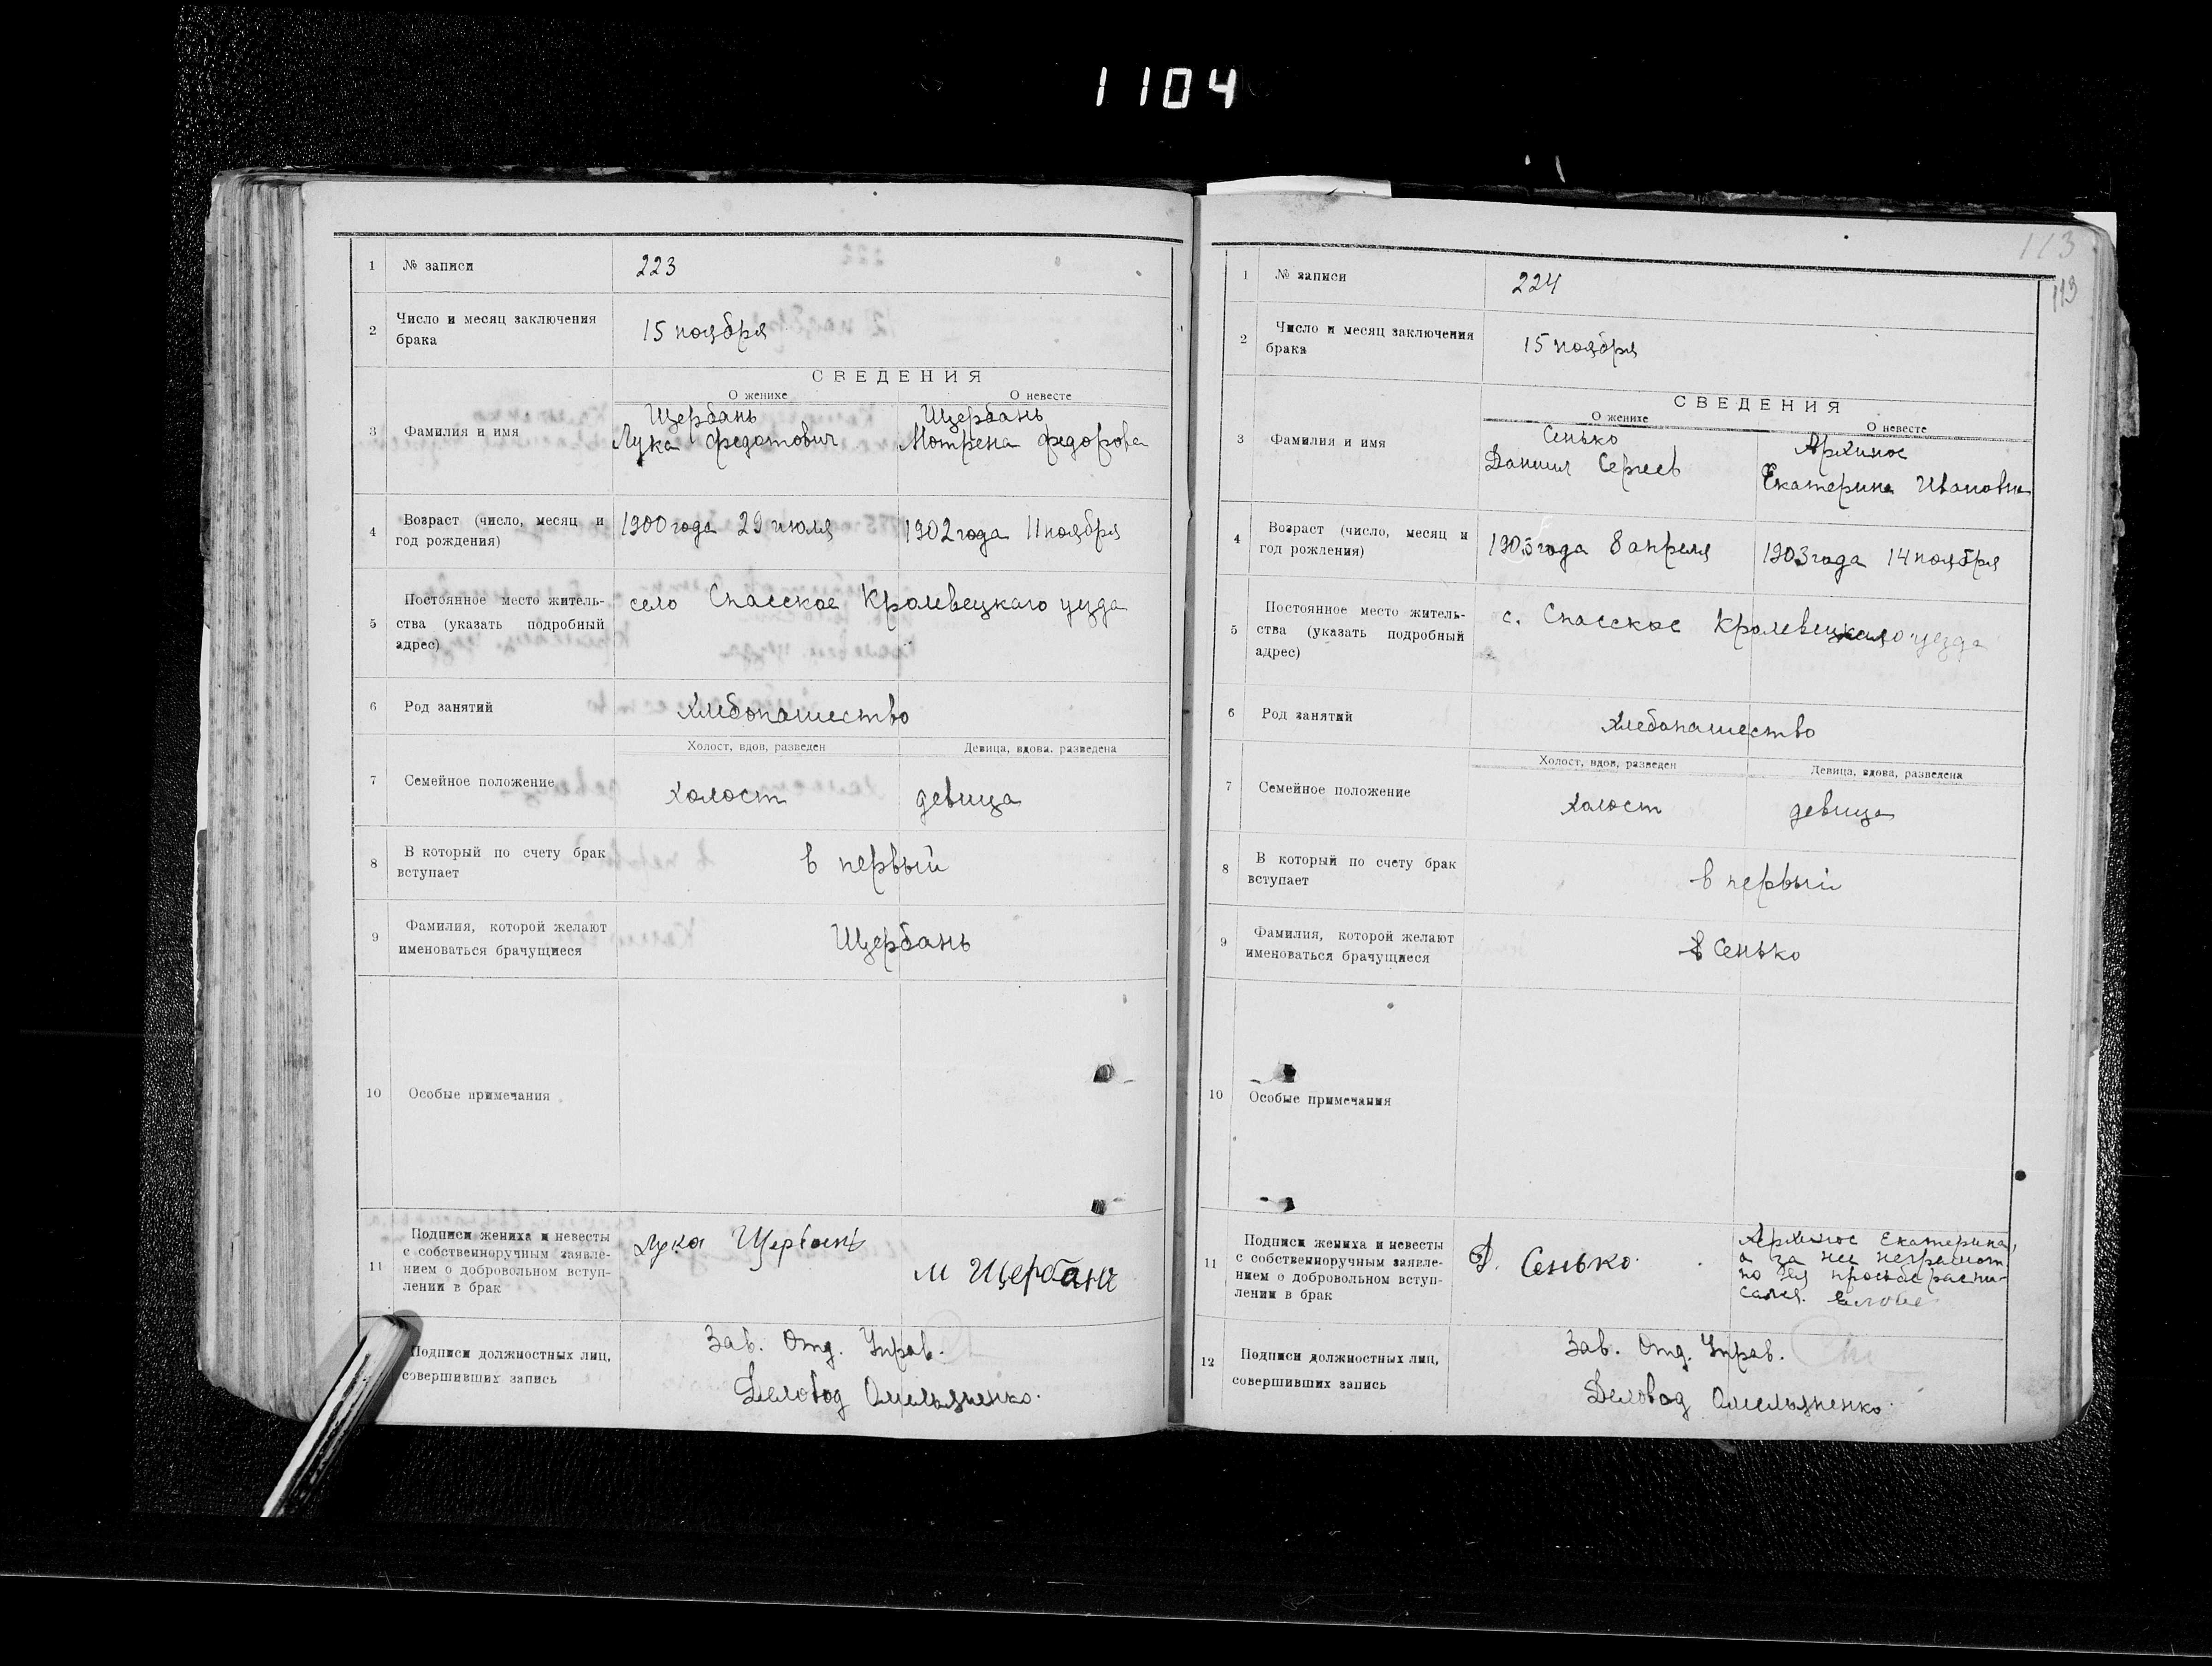 1104
1 № записи 223
2 Число и месяц заключения
брака
15 ноября
СВЕДЕНИЯ
О женихе О невесте
3 Фамилия и имя
Щербань Щербань
Лука Федотович Мотрена Федорова
4 Возраст (число, месяц и
год рождения)
1900 года 29 июля 1902 года 11 ноября
5 Постоянное место житель-
ства (указать подробный
адрес)
село Спасское Кролевецкаго уезда
6 Род занятий хлебопашество
Холост, вдов, разведен Девица, вдова, разведена
7 Семейное положение холост девица
8 В который по счету брак
вступает
в первый
9 Фамилия, которой желают
именоваться брачущиеся
Щербань
10 Особые примечания
11 Подписи жениха и невесты
с собственноручным заявле-
нием о добровольном вступ-
лении в брак
Лука Щербань
М Щербань
Подписи должностных лиц,
совершивших запись
Зав. Отд. Управ.
Деловод Омельяненко.
113
113
1 № записи 224
2 Число и месяц заключения
брака
15 ноября
СВЕДЕНИЯ
О женихе О невесте
3 Фамилия и имя
Сенько Архипос
Даниил Сергеев Екатерина Ивановна
4 Возраст (число, месяц и
год рождения)
1903 года 8 апреля 1903 года 14 ноября
5 Постоянное место житель-
ства (указать подробный
адрес)
с. Спасское Кролевецкаго уезда
6 Род занятий хлебопашество
Холост, вдов, разведен Девица, вдова, разведена
7 Семейное положение холост девица
8 В который по счету брак
вступает
в первый
9 Фамилия, которой желают
именоваться брачущиеся
Сенько
10 Особые примечания
11 Подписи жениха и невесты
с собственноручным заявле-
нием о добровольном вступ-
лении в брак
Д. Сенько.
Архипос Екатерина,
а за нее неграмот
по ея просьбе распи-
сался.
12 Подписи должностных лиц,
совершивших запись
Зав. Отд. Управ.
Деловод Омельяненко.